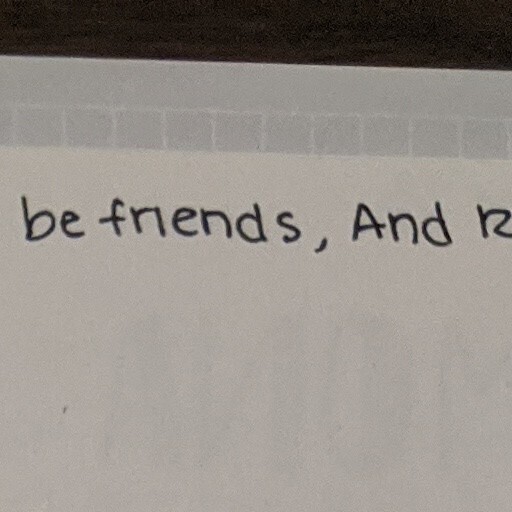 be friends, And